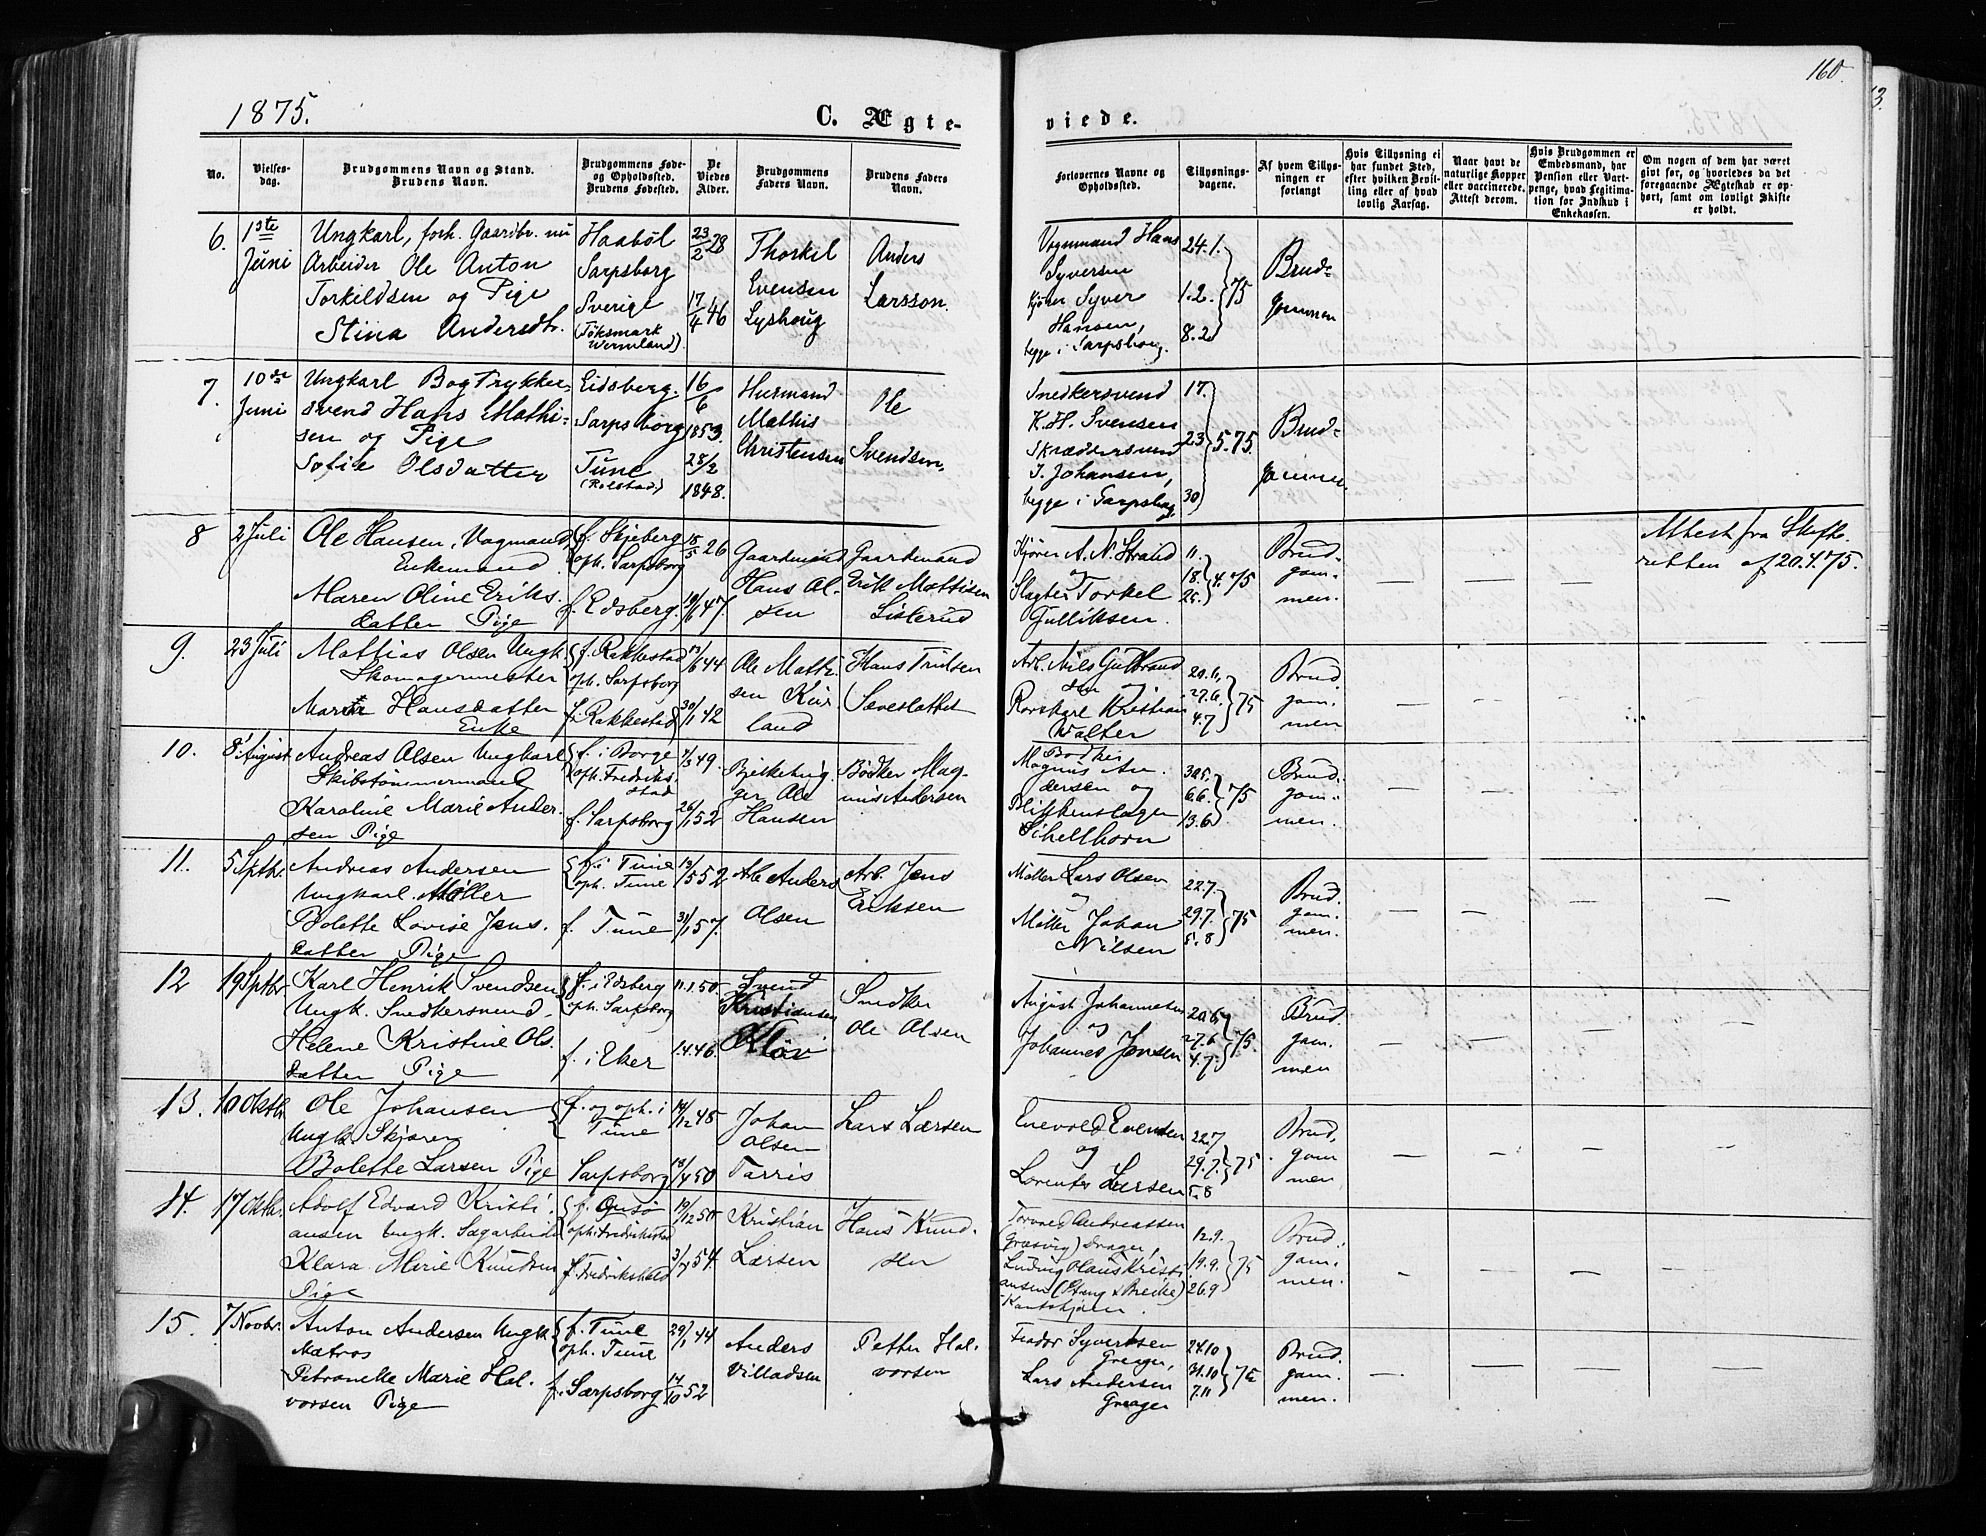 160.
1875.
C. Ægte-
viede.
No.
Vielses-
dag.
Brudgommens Navn og Stand.
Brudens Navn.
Brudgommens Føde-
og Opholdssted.
Brudens Fødested.
De
Viedes
Alder.
Brudgommens
Faders Navn.
Brudens Faders
Navn.
Forlovernes Navne og
Opholdssted.
Tillysnings-
dagene.
Af hvem Tillys-
ningen er
forlangt
Hvis Tillysning ei
har fundet Sted,
efter hvilken Bevil-
ling eller af hvad
lovlig Aarsag.
Naar havt de
naturlige Kopper
eller vaccinerede.
Attest derom.
Hvis Brudgommen er
Embedsmand, har
Pension eller Vart-
penge, hvad Legitima-
tion for Indskud i
Enkekassen.
Om nogen af dem har været
givt før, og hvorledes da det
foregaaende Ægteskab er op-
hørt, samt om lovligt Skifte
er holdt.
6.
1ste
Juni
Ungkarl, forh. Gaardbr. nu
Arbeider Ole Anton
Torkildsen og Pige
Stina Andersdtr.
Haaböl
Sarpsborg
Sverige
(Töksmark
Wermland).
23/2 28
17/4 46
Thorkil
Evensen
Lyshoug
Anders
Larsson.
Vognmand Hans
Syversen
Kjörer Syver
Hansen,
begge i Sarpsborg.
24.1.
1.2.
8.2
75
Brud-
gommen
7.
10de
Juni
Ungkarl Bogtrykker-
svend Hans Mathi-
sen og Pige
Sofie Olsdatter
Eidsberg.
Sarpsborg
Tune
(Rolstad)
16/6
1853.
28/2
1848.
Husmand
Mathis
Christensen
Ole
Svendsen.
Snedkersvend
K. H. Svensen
Skrædersvend
I. Johansen,
begge i Sarpsborg.
17.
23
30
5.75.
Brud-
gommen.
8
2 Juli
Ole Hansen, Vogmand,
Enkemand.
Maren Oline Eriks-
datter Pige
f. Skjeberg
oph. Sarpsborg
f. Edsberg.
18/5 26
19/6 47.
Gaardmand
Hans Ol-
sen
Gaardmand
Erik Mattisen
Sisterud
Kjörer A. N. Strand
og
Slagter Torkel
Gulliksen.
11.
18.
25.
4. 75
Brud-
gom-
men.
Attest fra Skifte-
retten af 20.4.75.
9.
23 Juli
Mattias Olsen Ungk.
Skomagermester
Marte Hansdatter
Enke
f. Rakkestad
oph. Sarpsborg
f. Rakkestad
13/6 44
30/1 42
Ole Matti-
sen Kur-
land
Hans Trulsen
Arb. Nils Gulbrand-
sen og
Kristian
Walter
20.6.
27.6.
4.7
75
Brud-
gom-
men
10.
8' August
Andreas Olsen Ungkarl
Skibstömmermand
Karoline Marie Ander-
sen Pige
f. i Borge
oph. Fredriks-
stad
f. Sarpsborg
7/3 49.
26/1 52
Ole
Hansen
Bödker Mag-
nus Andersen
Bödker
Magnus An-
dersen og
Blikkenslager
Schellhorn
30.5.
6.6.
13.6
75
Brud-
gom-
men.
11.
5 Septbr.
Andreas Andersen
Ungkarl Möller
Bolette Lovise Jens-
datter Pige
f. i Tune
oph. Tune
f. Tune
13/5 52
31/1 57.
Arb Anders
Olsen
Arb. Jens
Eriksen
Möller Lars Olsen
og
Möller Johan
Nilsen
22.7.
29.7.
5.8
75
Brud-
gom-
men.
12
19 Septbr
Karl Henrik Svendsen
Ungk. Snedkersvend.
Helene Kristine Ols-
datter Pige
f. i Edsberg
oph. Sarpsborg
f. i Eker
11.1.50.
1.4.46
Svend
Kristiansen
Snedker
Ole Olsen
August Johannesen
og
Johannes Jensen
20.6
27.6
4.7.
75.
Brud-
gom-
men
13.
10 Oktbr
Ole Johansen
Ungk. Skjörer
Bolette Larsen Pige
f. og oph. i
Tune
Sarpsborg
14/12 48
18/4 50
Johan
Olsen
Tarris
Lars Larsen
Enevold Evensen
og
Lorents Larsen
22.7
29.7.
5.8
75
Brud-
gom
men
14.
17 Oktbr.
Adolf Edvard Kristi-
ansen Ungk. Sagarbeider
Klara Marie Knudsen
Pige
f. Onsö
oph. Fredrikstad
f. Fredrikshald
19/12 50
3/7 54
Kristian
Larsen
Hans Knud-
sen
Torvald Andreassen
(Græsvig) Drager,
Ludvig Olaus Kristi-
ansen
12.9.
19.9.
26.9
75
Brud-
gom-
men.
15.
7 Novbr.
Anton Andersen Ungk
Matros
Petronelle Marie Hal-
vorsen Pige
f. Tune
oph. Tune
f. Sarpsborg
29/1 44
14/10 52
Anders
Villadsen
Petter Hal-
vorsen
Syvertsen
Greager,
Lars Andersen
Greager
24.10
31.10
7.11
75
Brud-
gom-
men.